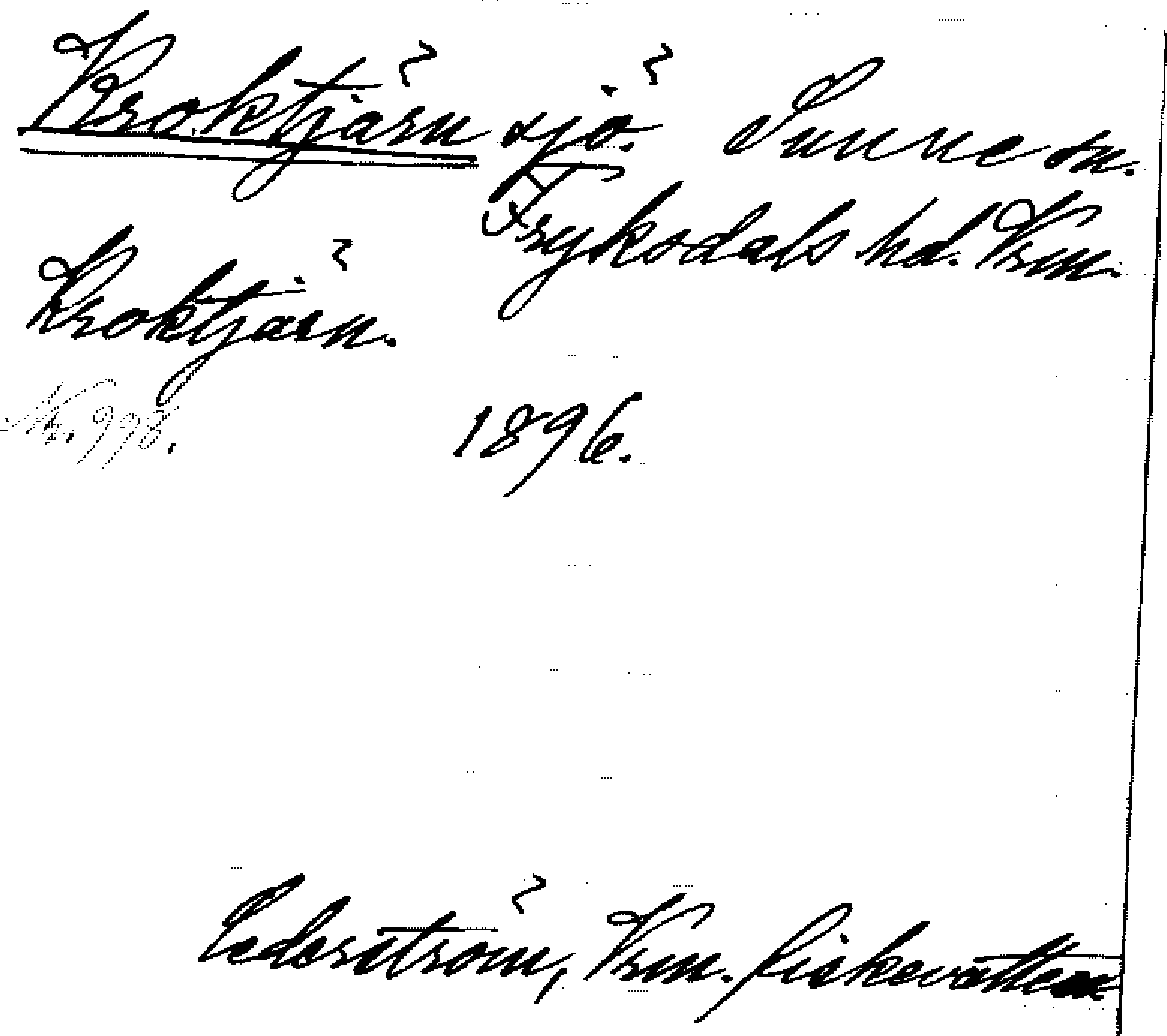 Kroktjärn sjö. Sunne sn.
Fryksdals hd. Vrm.
Kroktjärn.
Nr. 998.
1896.
Cederström, Vrm. fiskevatten